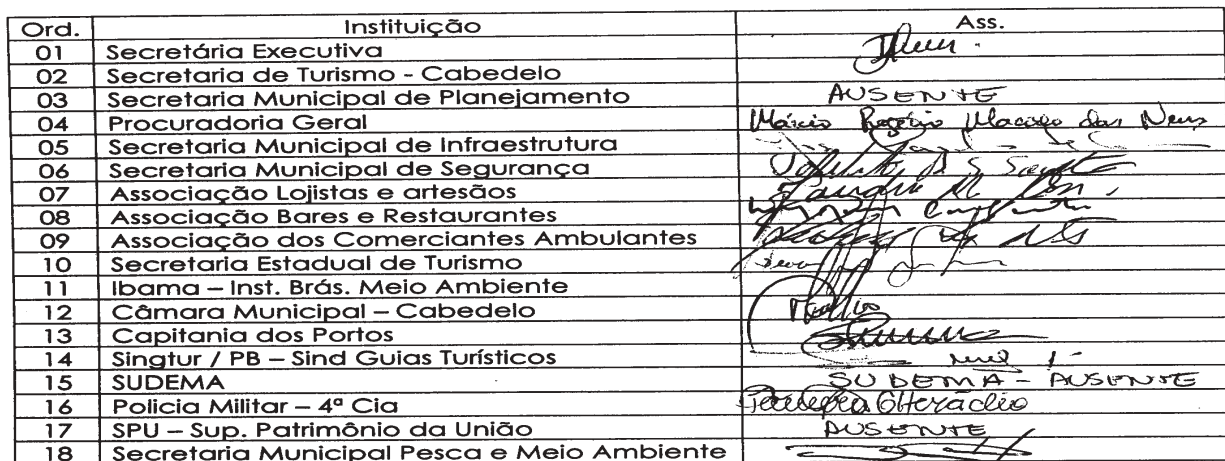 Ord. Instituição Ass.
01 Secretária Executiva
02 Secretaria de Turismo - Cabedelo
03 Secretaria Municipal de Planejamento AUSENTE
04 Procuradoria Geral Márcio Rogério Macêdo das Neves
05 Secretaria Municipal de Infraestrutura
06 Secretaria Municipal de Segurança
07 Associação Lojistas e artesãos
08 Associação Bares e Restaurantes
09 Associação dos Comerciantes Ambulantes
10 Secretaria Estadual de Turismo
11 Ibama – Inst. Brás. Meio Ambiente
12 Câmara Municipal – Cabedelo
13 Capitania dos Portos
14 Singtur / PB – Sind Guias Turísticos
15 SUDEMA SUDEMA - AUSENTE
16 Policia Militar – 4ª Cia
17 SPU – Sup. Patrimônio da União AUSENTE
18 Secretaria Municipal Pesca e Meio Ambiente